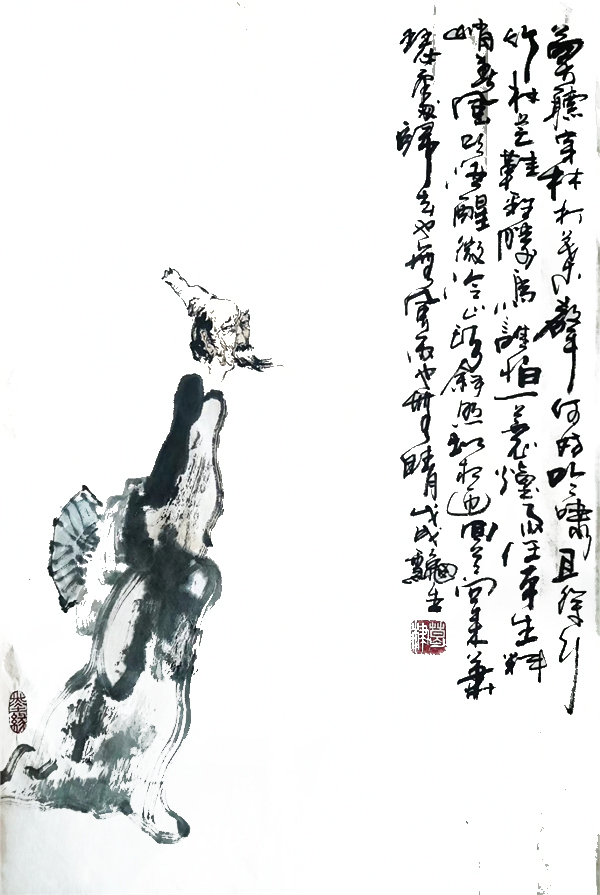 莫聽穿林打葉聲何妨吟嘯且徐行
竹杖芒鞋輕勝馬誰怕一蓑煙雨任平生料
峭春風吹酒醒微冷山頭斜照却相迎回首向來蕭
瑟處歸去也無風雨也無晴戊戌